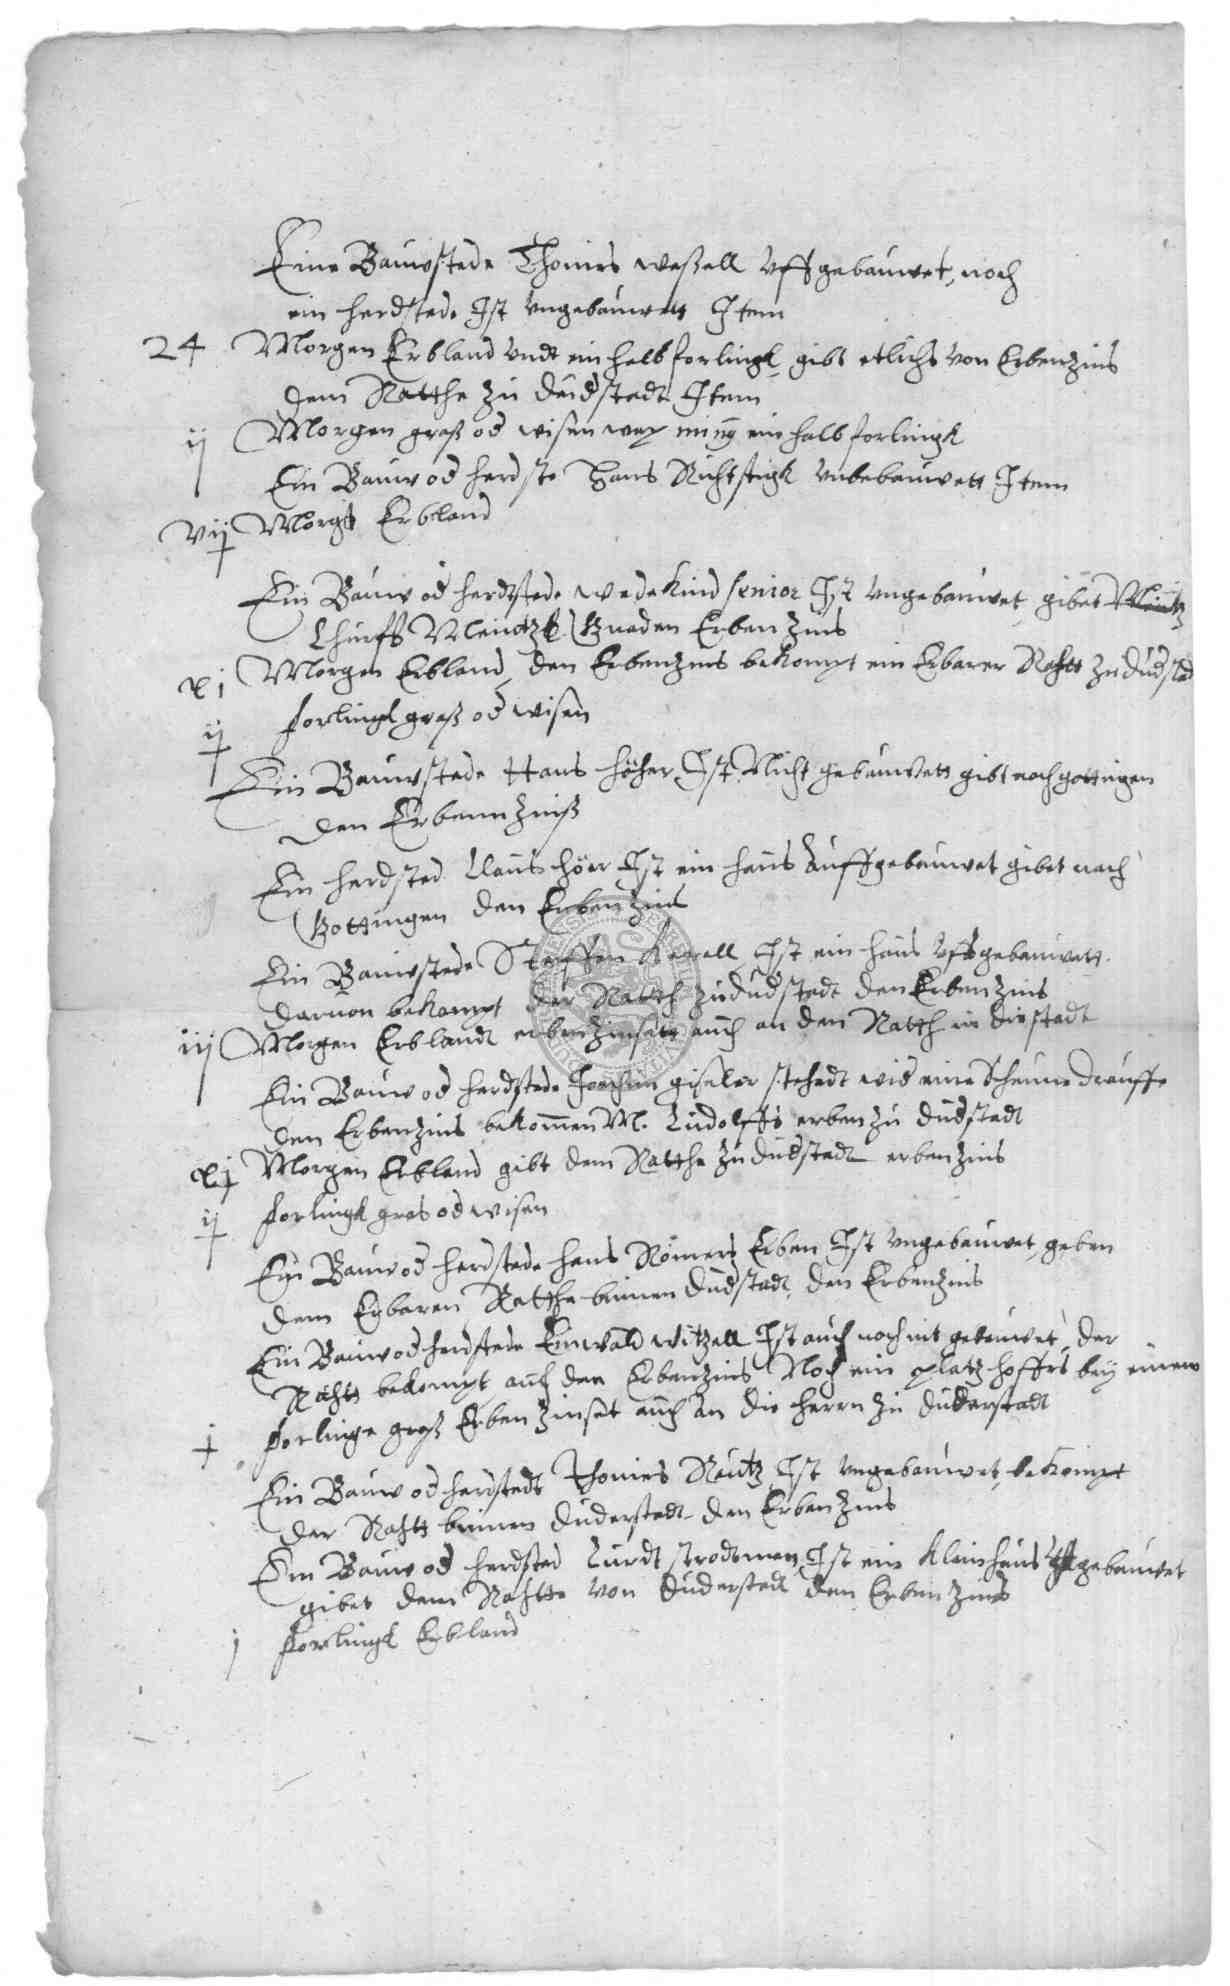 Eine Bauwstede Thonies weßell Uffgebauwet, noch
ein herdstede Ist ungebauwett Item
24 Morgen Erbland undt ein halb forlingk gibt etlichs von Erbenzins
dem Ratthe zu dudstadt Item
ij Morgen graß od wisen ein halb forlingk
Ein Bauw od herdste Hans Richtstigk unbebauwett Item
vij Morgen Erbland
Ein Bauw od herdtstede wedekind senior Ist ungebauwet gibet
Churff Meintzk Gnaden Erben Zins
xi Morgen Erbland, den Erbenzins bekompt ein Erbarer Rahtt zu dudstad
ij forlingk graß od wisen
Ein Bauwstede Hans höher Ist Nicht gebauwett gibt nach gottingen
den Erbennzinß
Ein herdsted Clauß höer Ist ein hauß auffgebauwet gibet nach
Gottingen den Erbenzins
Ein Bauwstede Steffen Ist ein hauß uffgebauwett
daruon bekompt der Ratth zu dudstadt den Erbenzins
iij Morgen Erblandt erbenzinsett auch an den Ratth in die stadt
Ein Bauw od herdstede Joachim giseler stehedt wid eine Scheune drauffe
den Erbenzins bekommen M. Ludolffs erben zu dudstadt
xj Morgen Erbland gibt dem Ratthe zu dudstadt erbenzins
ij forlingk gras od wisen
Ein Bauw od herdstede hans Römers Erben Ist ungebauwet, geben
dem Erbaren Ratthe binnen dudstadt, den Erbenzins
Ein Bauw od herdstede Ewald witzell Ist auch noch nit gebauwet, der
Rahtt bekompt auch den Erbenzins Noch ein platz hoffes bey einem
j forlinge graß Erbenzinset auch an die herrn zu duderstadt
Ein Bauw od herdstedt Thonies Ist ungebauwet, bekompt
der Rahtt binnen duderstadt den Erbenzins
Ein Bauw od herdsted Curdt strodtman, Ist ein klein hauß uffgebauwet
gibet dem Rahtte von duderstadt den Erbenzins
j forlingk Erbland